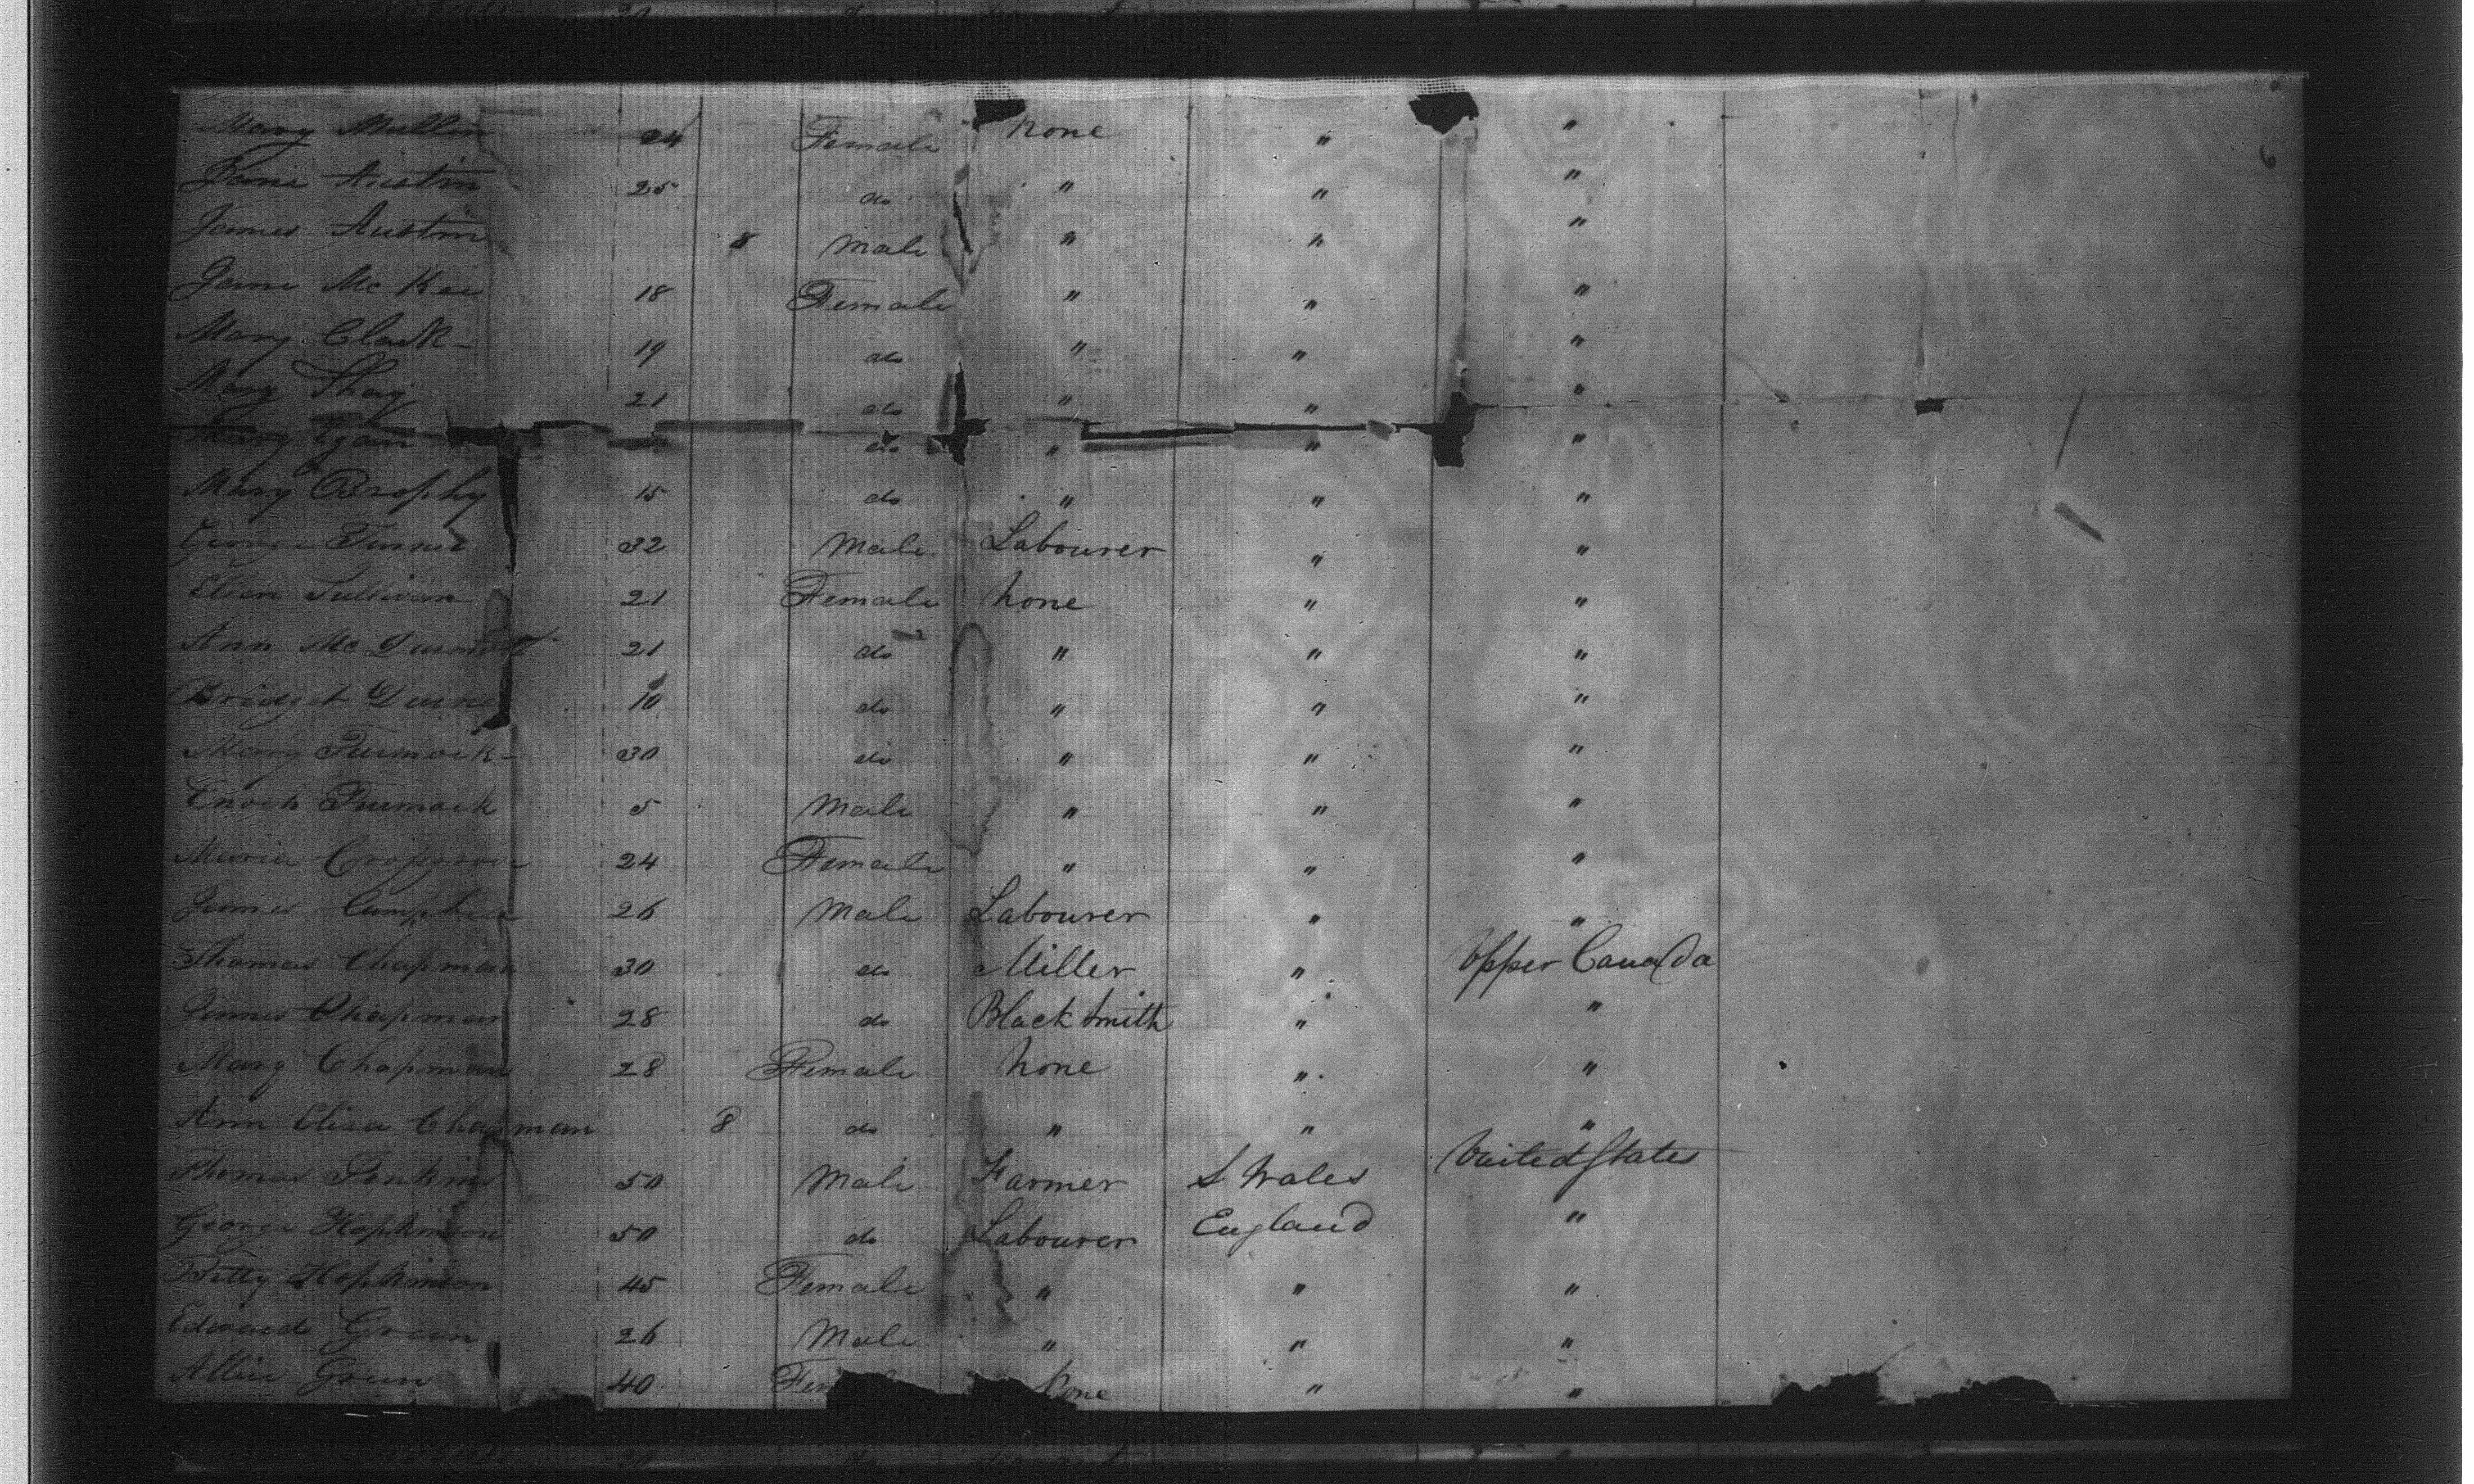 Mary Mullin 24 Female none " "
Jane Austin 25 do " " "
James Austin 8 Male " " "
Jane McKee 18 Female " " "
Mary Clark 19 do " " "
Mary Shay 21 do " " "
Mary Egan do " " "
Mary Brophy 15 do " " "
George Turner 32 Male Labourer " "
Ellen Sullivan 21 Female none " "
Ann McDurmott 21 do " " "
Bridget Dunne 10 do " " "
Mary 30 do " " "
Enoch 5 Male " " "
Maria 24 Female " " "
James Campbell 26 Male Labourer " "
Thomas Chapman 30 do Miller " Upper Canada
James Chapman 28 do Black Smith " "
Mary Chapman 28 Female none " "
Ann Eliza Chapman 8 do " " "
Thomas Jenkins 50 Male Farmer S Wales United States
George Hopkinson 50 do Labourer England "
Betty Hopkinson 45 Female " " "
Edward Green 26 Male " " "
Green 40 None " "